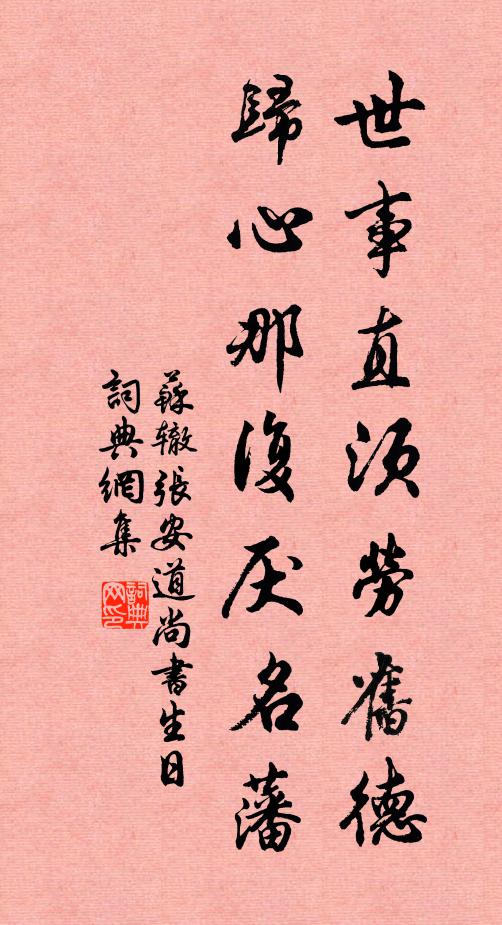 世事直須勞舊德
歸心那復厌名藩
蘇辙張安道尚書生日
詞典網集
詞典網印